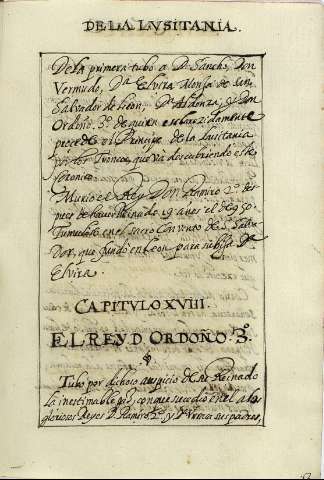 DE LA LVSITANIA.
De la primera tubo a D. Sancho, Don
Vermudo, Dª Elvira Monja de San
Salvador de Leon, Dª Aldonza, y Don
Ordoño. 3º de quien esclarezidamente
procede el Principe de la Lusitania
por los Troncos, que va descubriendo este
Murio el Rey Don Ramiro 2º des
pues de haver Reinado
en el sacro Convento de S. Salva
Dor, que fundò en Leon para su hija Dª
Elvira.
CAPITVLO XVIII.
EL REY D. ORDOÑO. 3º.
Tubo por dichoso auspicio de su Reinado
La inestimable con que sucedio en el a los
gloriosos Reyes D. Ramiro 2º y Dª Vrraca sus padres,